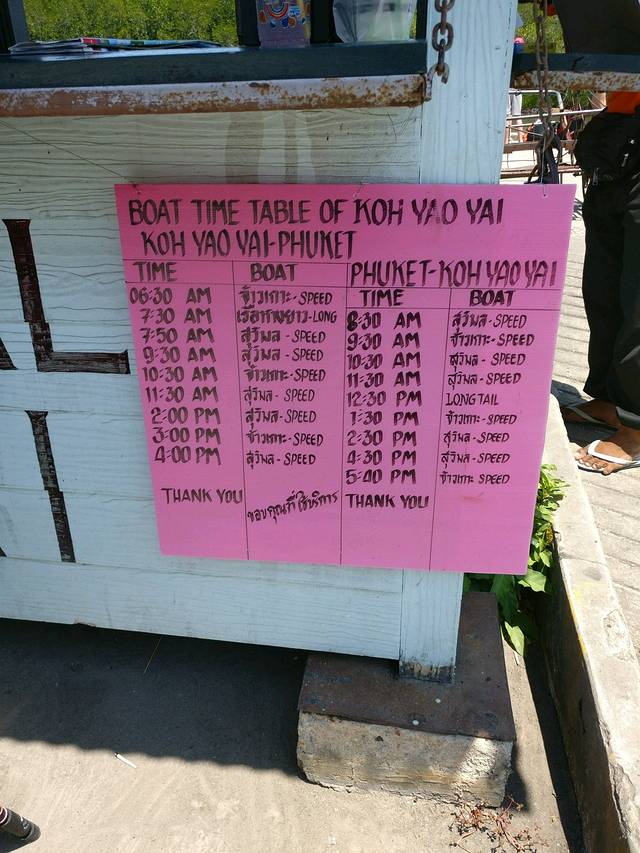 BOAT TIME TABLE OF KOH YAO YAI
KOH YAO YAI-PHUKET
TIME BOAT
06:30 AM จ้าวเกาะ-SPEED
7:30 AM เรือหางยาว-LONG
7:50 AM สุวิมล-SPEED
9:30 AM สุวิมล-SPEED
10:30 AM จ้าวเกาะ-SPEED
11:30 AM สุวิมล-SPEED
2:00 PM สุวิมล-SPEED
3:00 PM จ้าวเกาะ-SPEED
4:00 PM สุวิมล-SPEED
THANK YOU ขอบคุณที่ใช้บริการ
PHUKET-KOH YAO YAI
TIME BOAT
8:30 AM สุวิมล-SPEED
9:30 AM จ้าวเกาะ-SPEED
10:30 AM สุวิมล-SPEED
11:30 AM สุวิมล-SPEED
12:30 PM LONGTAIL
1:30 PM จ้าวเกาะ-SPEED
2:30 PM สุวิมล-SPEED
4:30 PM สุวิมล-SPEED
5:40 PM จ้าวเกาะ-SPEED
THANK YOU
L
I